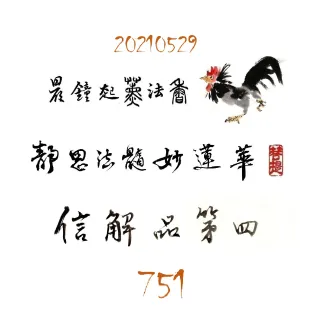 20210529
晨鐘起薰法香
靜思法髓妙蓮華
信解品第四
751